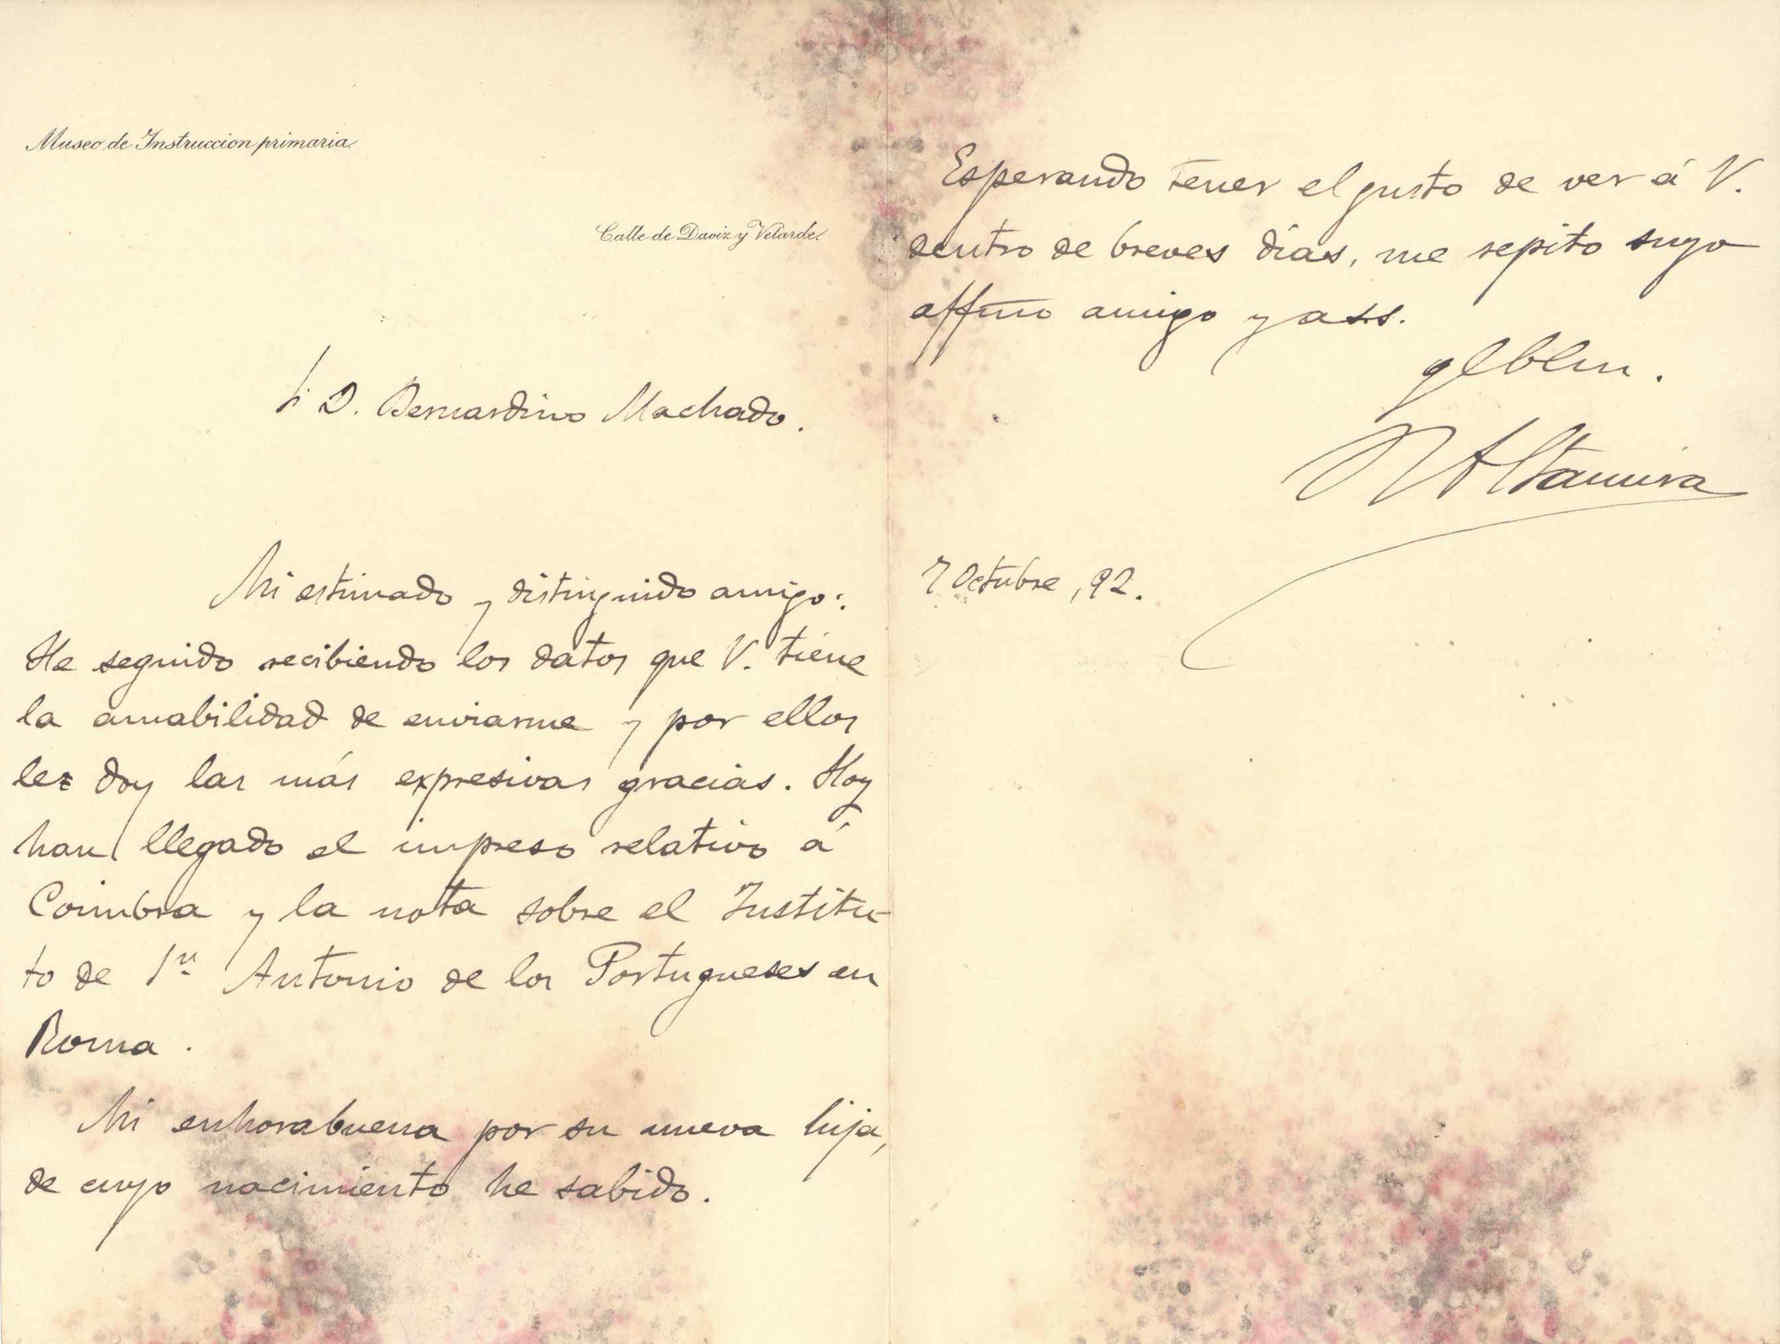 Museo de Instruccion primaria
Calle de Daoiz y Velarde
Sr D. Bernardino Machado.
Mi estimado y distinguido amigo:
He seguido recibiendo los datos que V. tiene
la amabilidad de enviarme y por ellos
le doy las más expresivas gracias. Hoy
han llegado el impreso relativo á
Coimbra y la nota sobre el Institu-
to de Sn Antonio de los Portugueses en
Roma.
Mi enhorabuena por su nueva hija,
de cuyo nacimiento he sabido.
Esperando tener el gusto de ver á V.
dentro de breves días, me repito suyo
affmo amigo y a s.s.
q l b l m.
R Altamira
7 Octubre, 92.